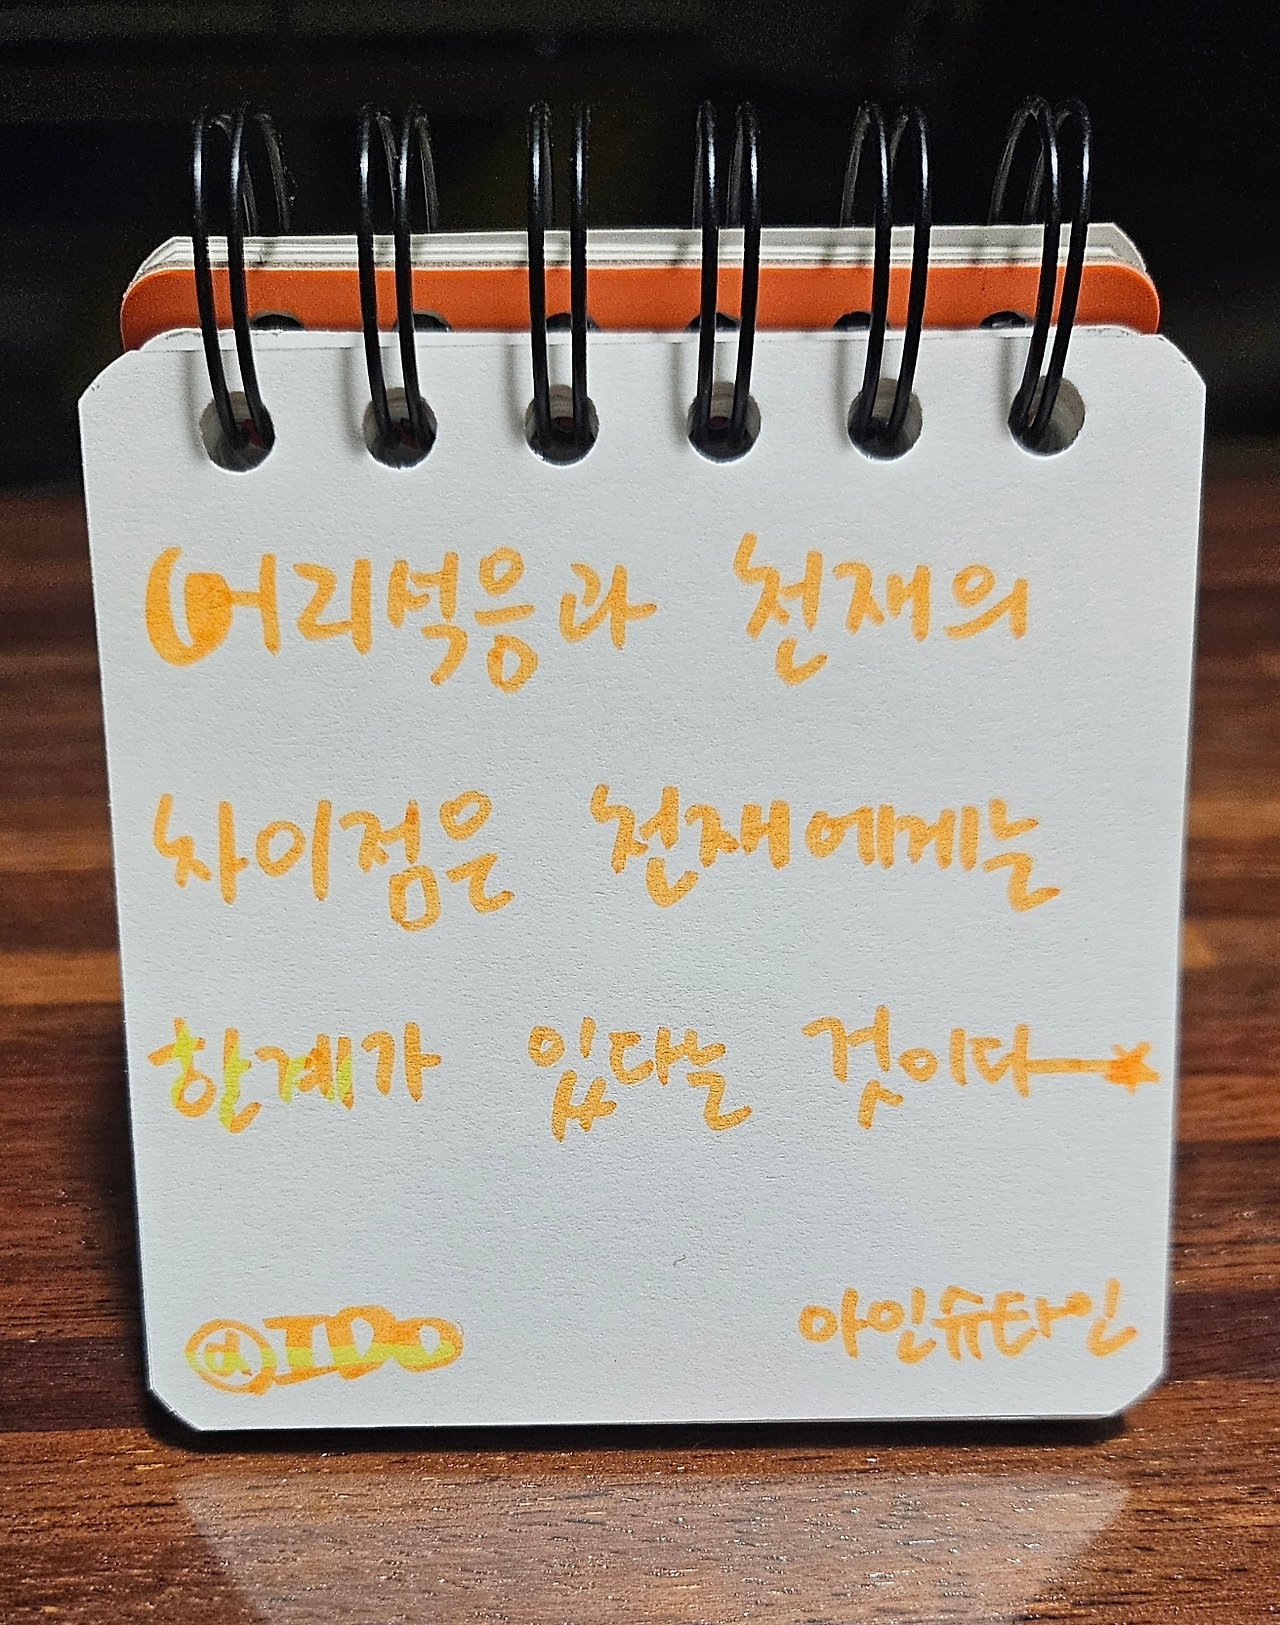 어리석응과 천재의
차이점은 천재에게는
한계가 있다는 것이다
아인슈타인